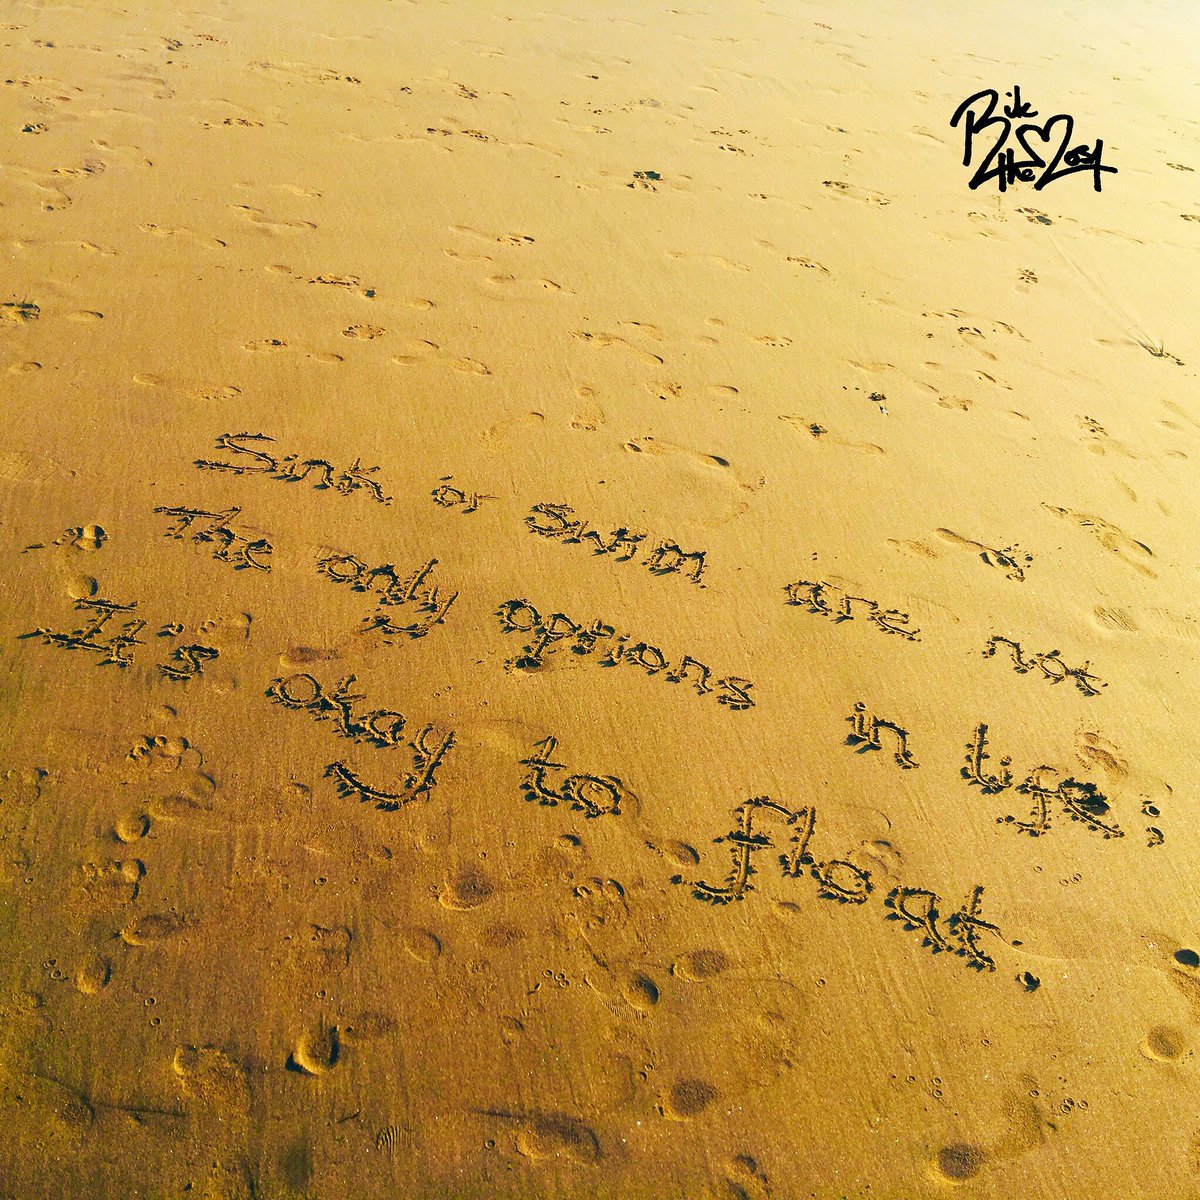 Sink or Swim are not
The only options in life:
It's okay to float.
the